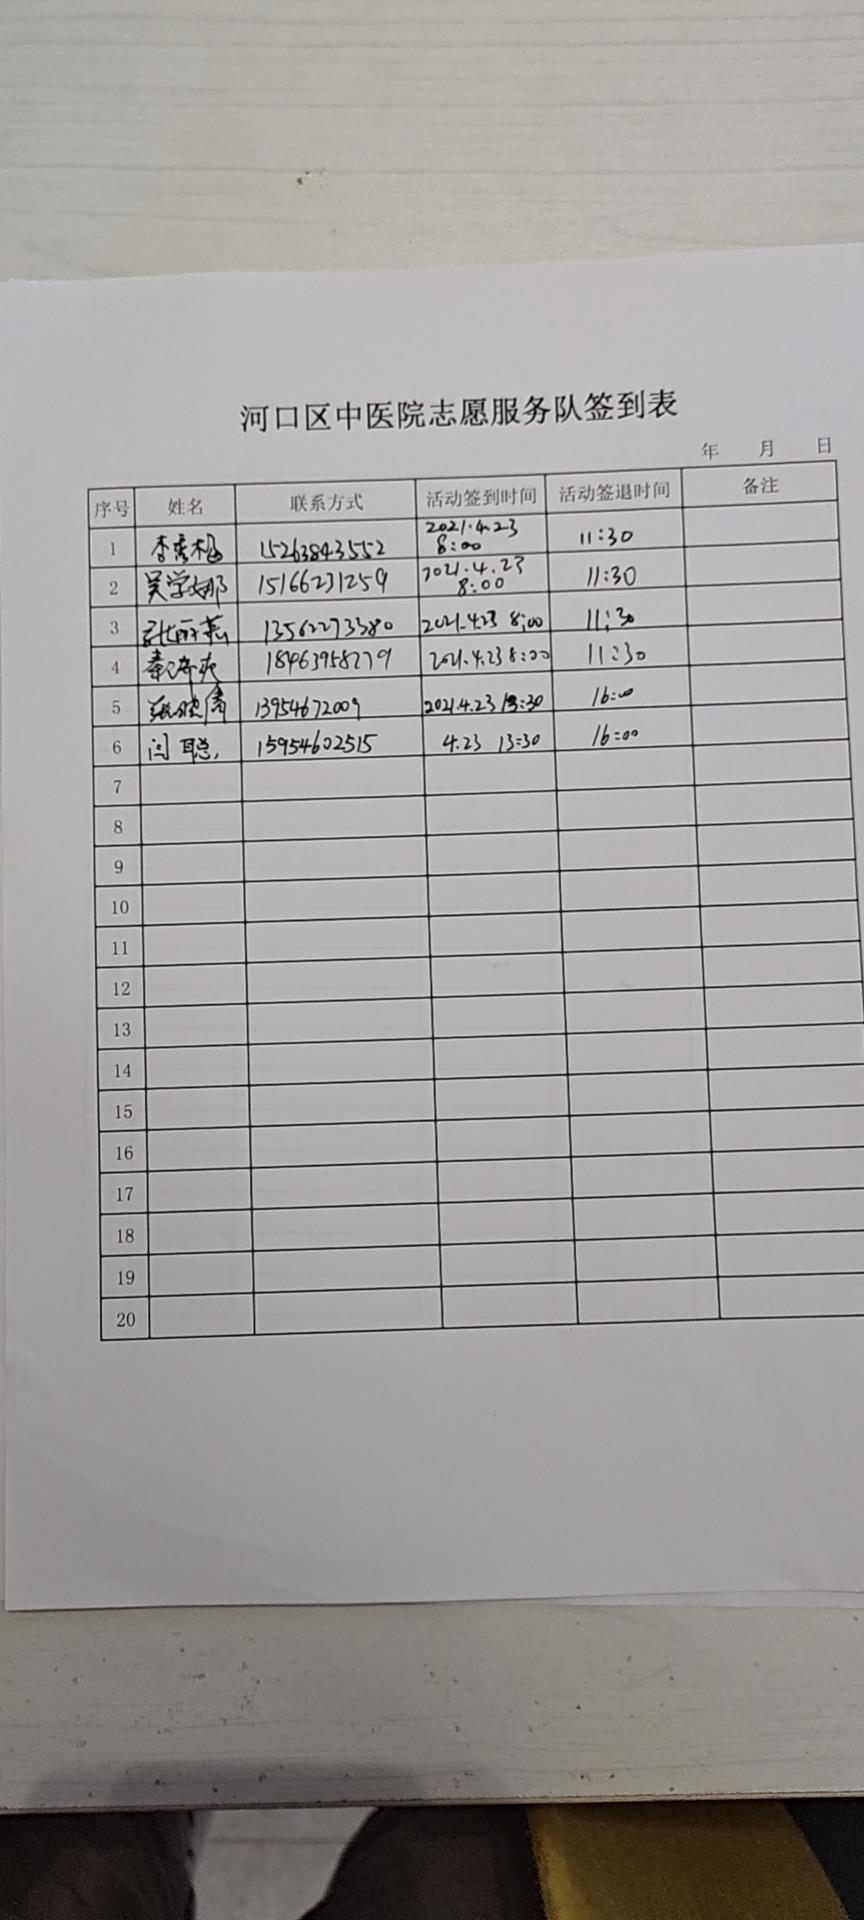 河口区中医院志愿服务队签到表
年 月 日
序号 姓名 联系方式 活动签到时间 活动签退时间 备注
1 李秀梅 15263843552 2021.4.23 8:00 11:30
2 吴学娜 15166231259 2021.4.23 8:00 11:30
3 13562273380 2021.4.23 8:00 11:30
4 18463958279 2021.4.23 8:00 11:30
5 13954672009 2021.4.23 13:30 16:00
6 闫聪 15954602515 4.23 13:30 16:00
7
8
9
10
11
12
13
14
15
16
17
18
19
20